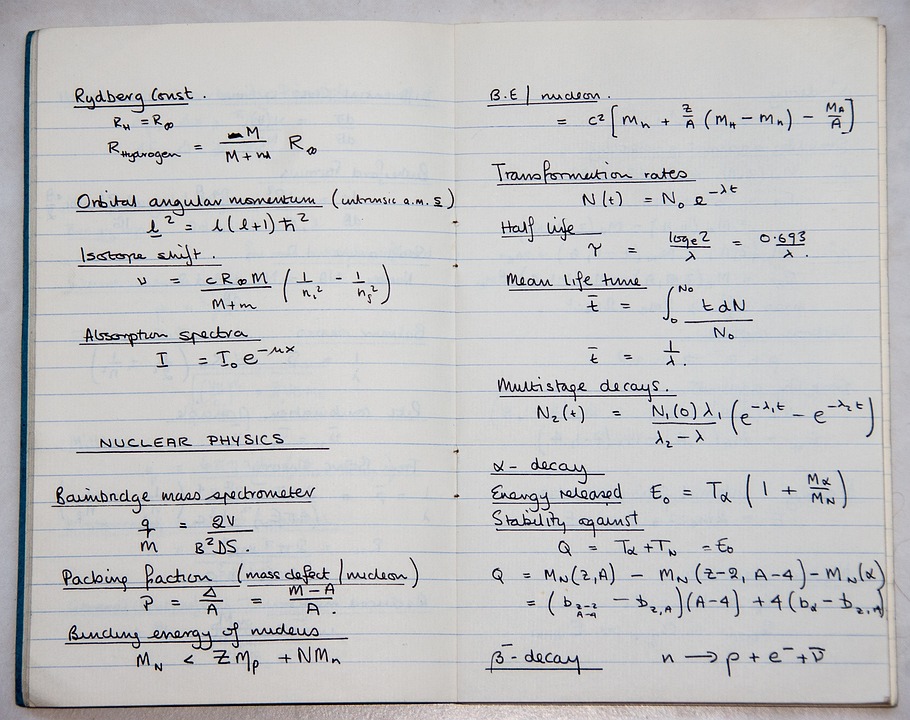 Rydberg Const.
R_H = R_∞
R_Hydrogen = M/(M+m) R_∞
Orbital angular momentum (intrinsic a.m. s)
l² = l(l+1)ħ²
Isotope shift.
ν = cR_∞M/(M+m) (1/n_i² - 1/n_f²)
Absorption spectra
I = I₀e^(-μx)
NUCLEAR PHYSICS
Bainbridge mass spectrometer
q/m = 2V/(B²DS).
Packing fraction (mass defect/nucleon)
P = Δ/A = (M-A)/A.
Binding energy of nucleus
M_N < ZM_p + NM_n
B.E/nucleon.
= c²[M_n + Z/A (M_H - M_n) - M_A/A]
Transformation rates
N(t) = N₀ e^(-λt)
Half life
τ = log_e 2/λ = 0.693/λ.
Mean life time
t̄ = ∫₀^(N₀) t dN/N₀
t̄ = 1/λ.
Multistage decays.
N₂(t) = N₁(0)λ₁/(λ₂-λ) (e^(-λ₁t) - e^(-λ₂t))
α-decay
Energy released E₀ = T_α (1 + M_α/M_N)
Stability against
Q = T_α + T_N = E₀
Q = M_N(Z,A) - M_N(Z-2, A-4) - M_N(α)
= (b_(Z-2, A-4) - b_(Z,A))(A-4) + 4(b_α - b_(Z,A)
β⁻-decay n → p + e⁻ + ν̄